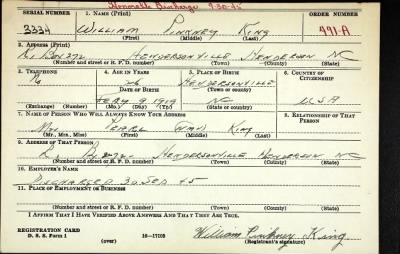 Honorable Discharge 9-30-45
SERIAL NUMBER 1. NAME (Print) ORDER NUMBER
3334 WILLIAM PINKNEY KING 491-A
(First) (Middle) (Last)
2. ADDRESS (Print)
HENDERSONVILLE HENDERSON NC
(Number and street or R. F. D. number) (Town) (County) (State)
3. TELEPHONE 4. AGE IN YEARS 5. PLACE OF BIRTH 6. COUNTRY OF CITIZENSHIP
HENDERSONVILLE
DATE OF BIRTH (Town or county)
FEB 9 1919 NC USA
(Exchange) (Number) (Mo.) (Day) (Yr.) (State or country)
7. NAME OF PERSON WHO WILL ALWAYS KNOW YOUR ADDRESS 8. RELATIONSHIP OF THAT PERSON
MRS PEARL KING
(Mr., Mrs., Miss) (First) (Middle) (Last)
9. ADDRESS OF THAT PERSON
HENDERSONVILLE HENDERSON NC
(Number and street or R. F. D. number) (Town) (County) (State)
10. EMPLOYER'S NAME
DISCHARGED 30 SEP 45
11. PLACE OF EMPLOYMENT OR BUSINESS
(Number and street or R. F. D. number) (Town) (County) (State)
I AFFIRM THAT I HAVE VERIFIED ABOVE ANSWERS AND THAT THEY ARE TRUE.
REGISTRATION CARD
D. S. S. Form 1 (over) 16—17105 William Pinkney King
(Registrant's signature)